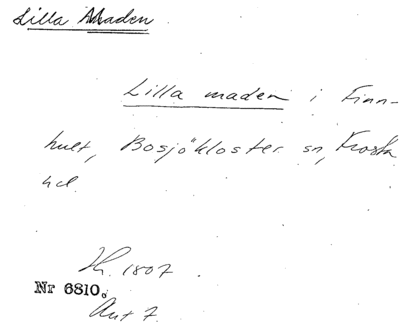 Lilla Maden
Lilla maden i Finn-
hult, Bosjökloster sn, Frosta
hd.
H. 1807.
Nr 6810.
Akt 7.